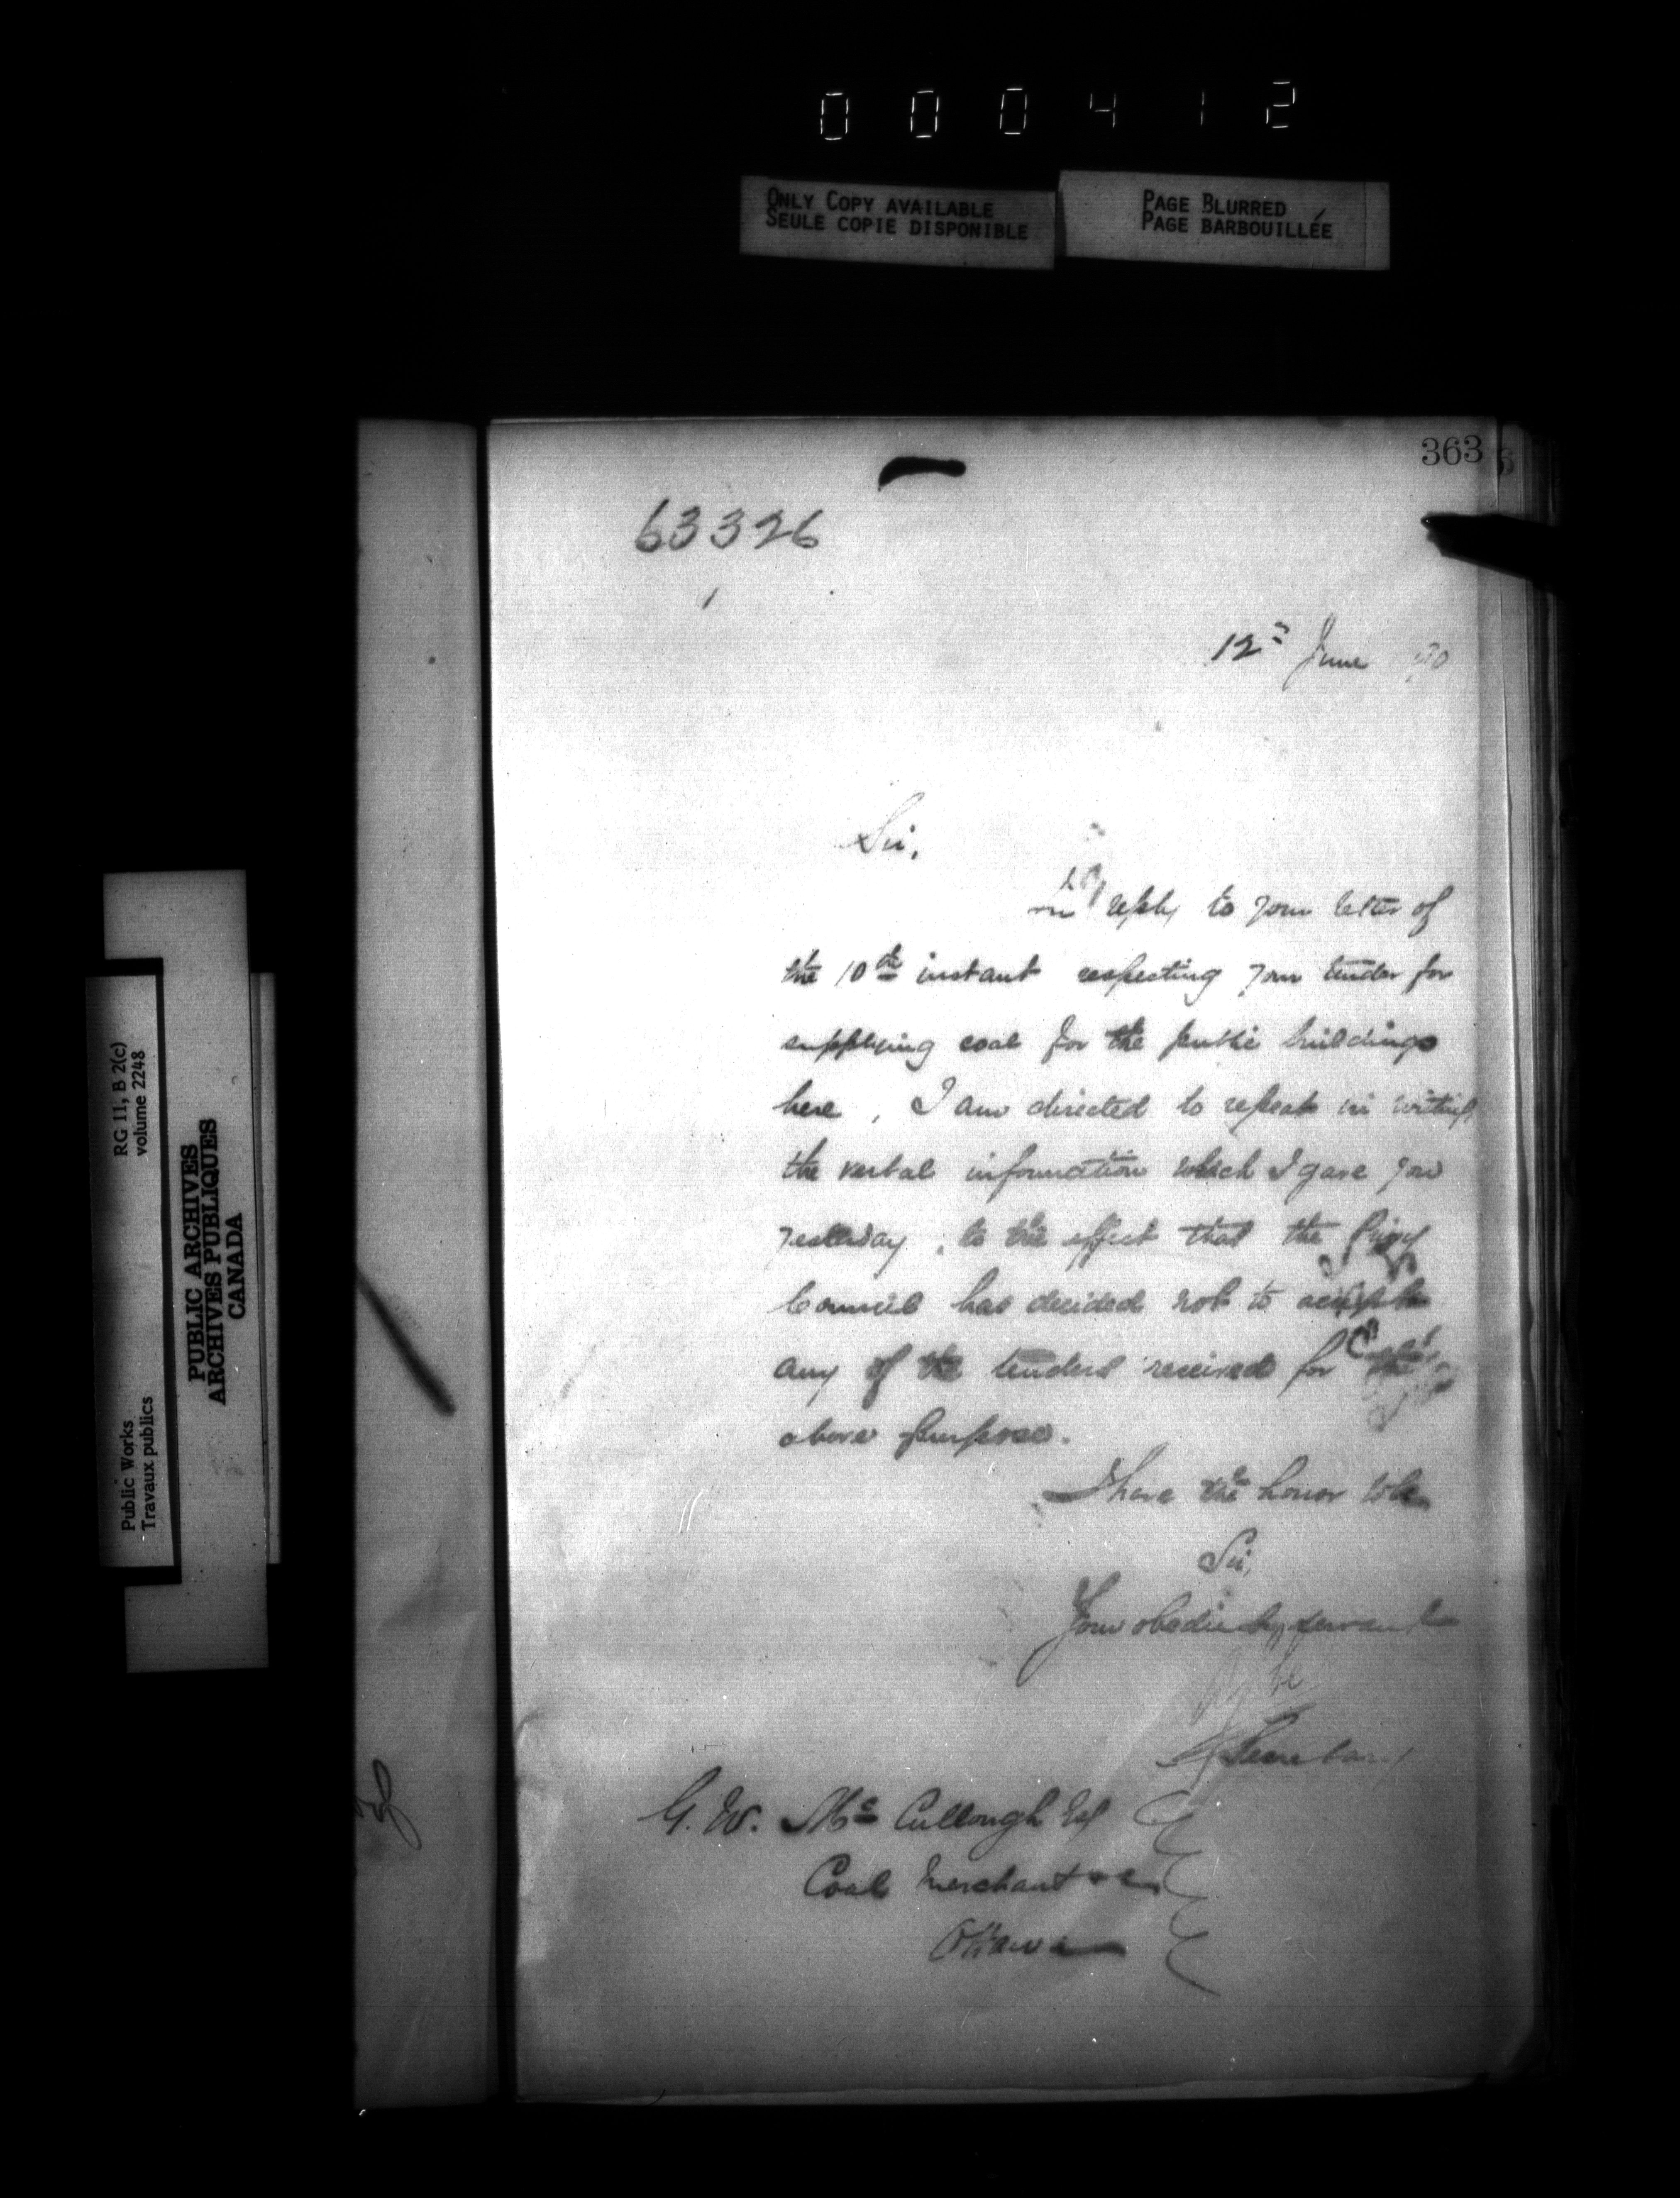 000412
ONLY COPY AVAILABLE
SEULE COPIE DISPONIBLE
PAGE BLURRED
PAGE BARBOUILLÉE
363
63326
12th June
Sir,
In reply to your letter of
the 10th instant respecting your tender for
supplying coal for the public buildings
here, I am directed to repeat in writing
the verbal information which I gave you
yesterday, to the effect that the Privy
Council has decided not to accept
any of the tenders received for the
above purpose.
I have the honor to be
Sir,
Your obedient servant
Secretary
G. W. Mc Cullough Esq
Coal Merchant &c
Ottawa
RG 11, B 2(c)
volume 2248
PUBLIC ARCHIVES
ARCHIVES PUBLIQUES
CANADA
Public Works
Travaux publics